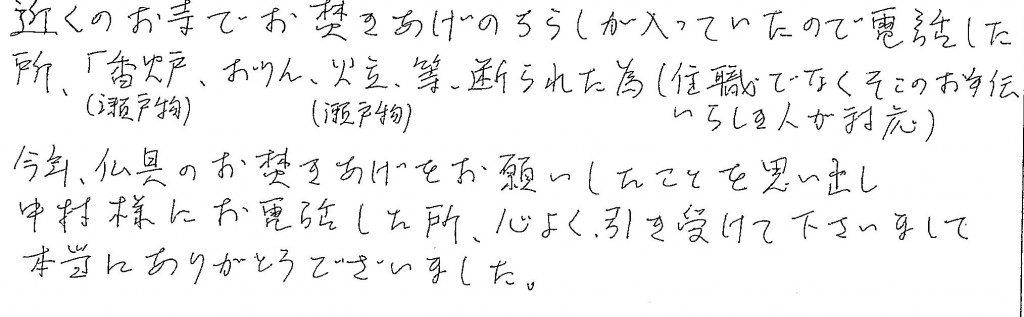 近くのお寺でお焚きあげのちらしが入っていたので電話した
所、「香炉、おりん、火立、等、断られた為(住職でなくそこのお手伝
(瀬戸物) (瀬戸物) いらしき人が対応)
今年、仏具のお焚きあげをお願いしたことを思い出し
中村様にお電話した所、心よく引き受けて下さいまして
本当にありがとうございました。